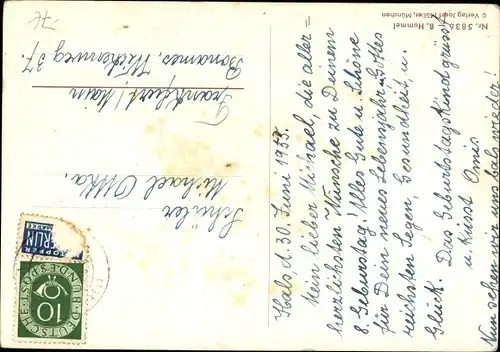 Nr. 5836 B. Hummel
© Verlag Josef Müller, München
Hals, d. 30. Juni 1953.
Mein lieber Michael, die aller=
herzlichsten Wünsche zu Deinem
8. Geburtstag! Alles Gute u. Schöne
für Dein neues Lebensjahr u. Gottes
reichsten Segen, Gesundheit, u.
Glück. Das Geburtstagskind grüsst
u. küsst Omis
Nun schreibe bald wieder!
Schüler
Michael
Frankfurt / Main
Bonames, 37.
NOTOPFER
BERLIN
STEUERMARKE
DEUTSCHE BUNDESPOST
10